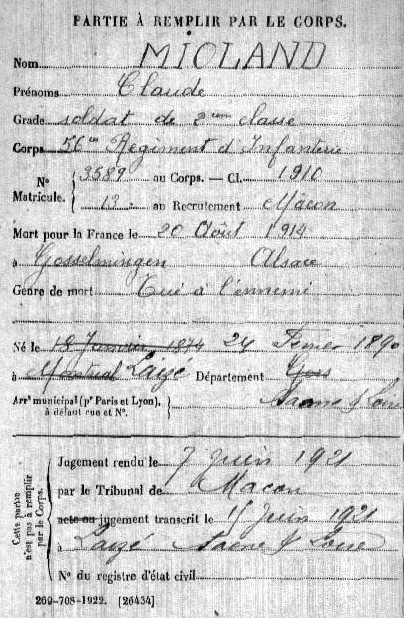 PARTIE À REMPLIR PAR LE CORPS.
Nom MIOLAND
Prénoms Claude
Grade soldat de 2ème classe
Corps 56me Régiment d'Infanterie
No 3589 au Corps. — Cl. 1910
Matricule. 13 au Recrutement Mâcon
Mort pour la France le 20 Août 1914
à Gosselmingen Alsace
Genre de mort Tué à l'ennemi
Né le 18 Janvier 1874 24 Février 1890
à Montreal Laizé Département Gers
Arrt municipal (pr Paris et Lyon), Saone & Loire
à défaut rue et No.
Cette partie
n'est pas à remplir
par le Corps.
Jugement rendu le 7 Juin 1921
par le Tribunal de Macon
acte ou jugement transcrit le 15 Juin 1921
à Laizé Saone & Loire
No du registre d'état civil
269-708-1922. [26434]